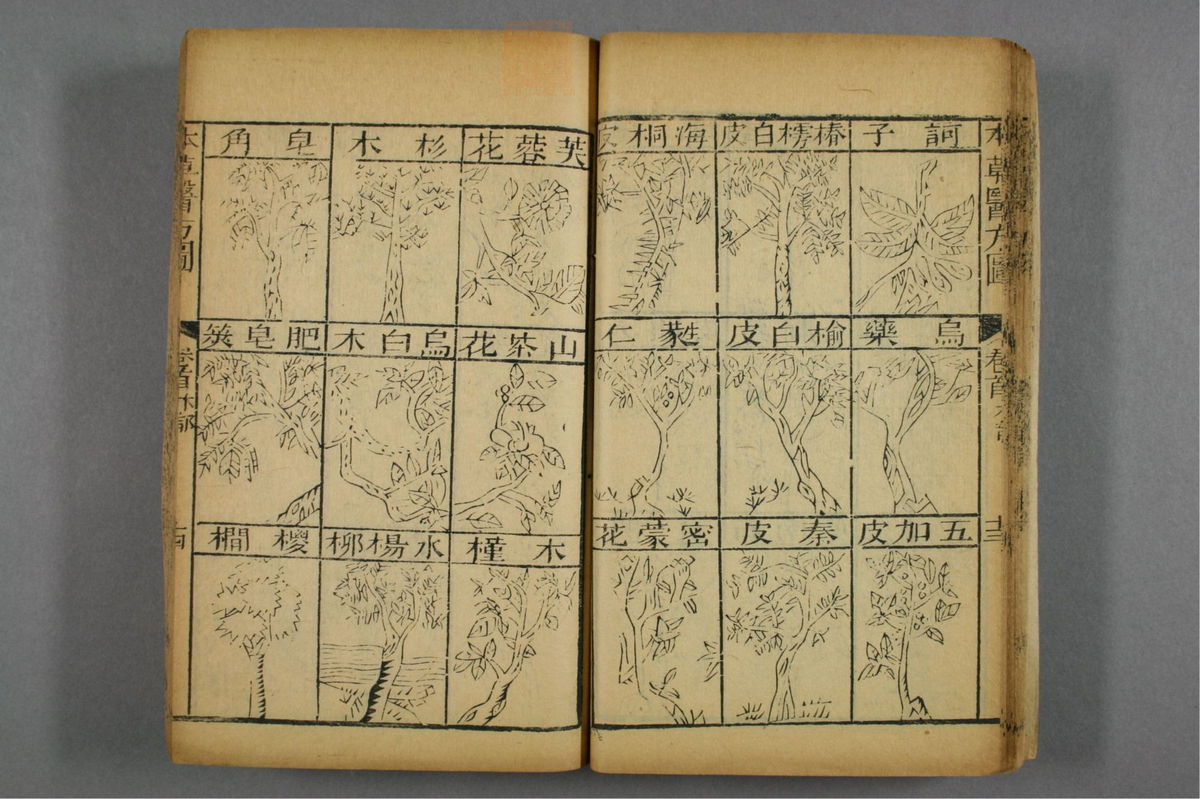 本草醫方圖
卷首木部
十三
訶子
椿樗白皮
海桐皮
烏藥
榆白皮
蕤仁
五加皮
秦皮
密蒙花
芙蓉花
杉木
皁角
山茶花
烏臼木
肥皂莢
木槿
水楊柳
椶櫚
本草醫方圖
卷首木部
十四